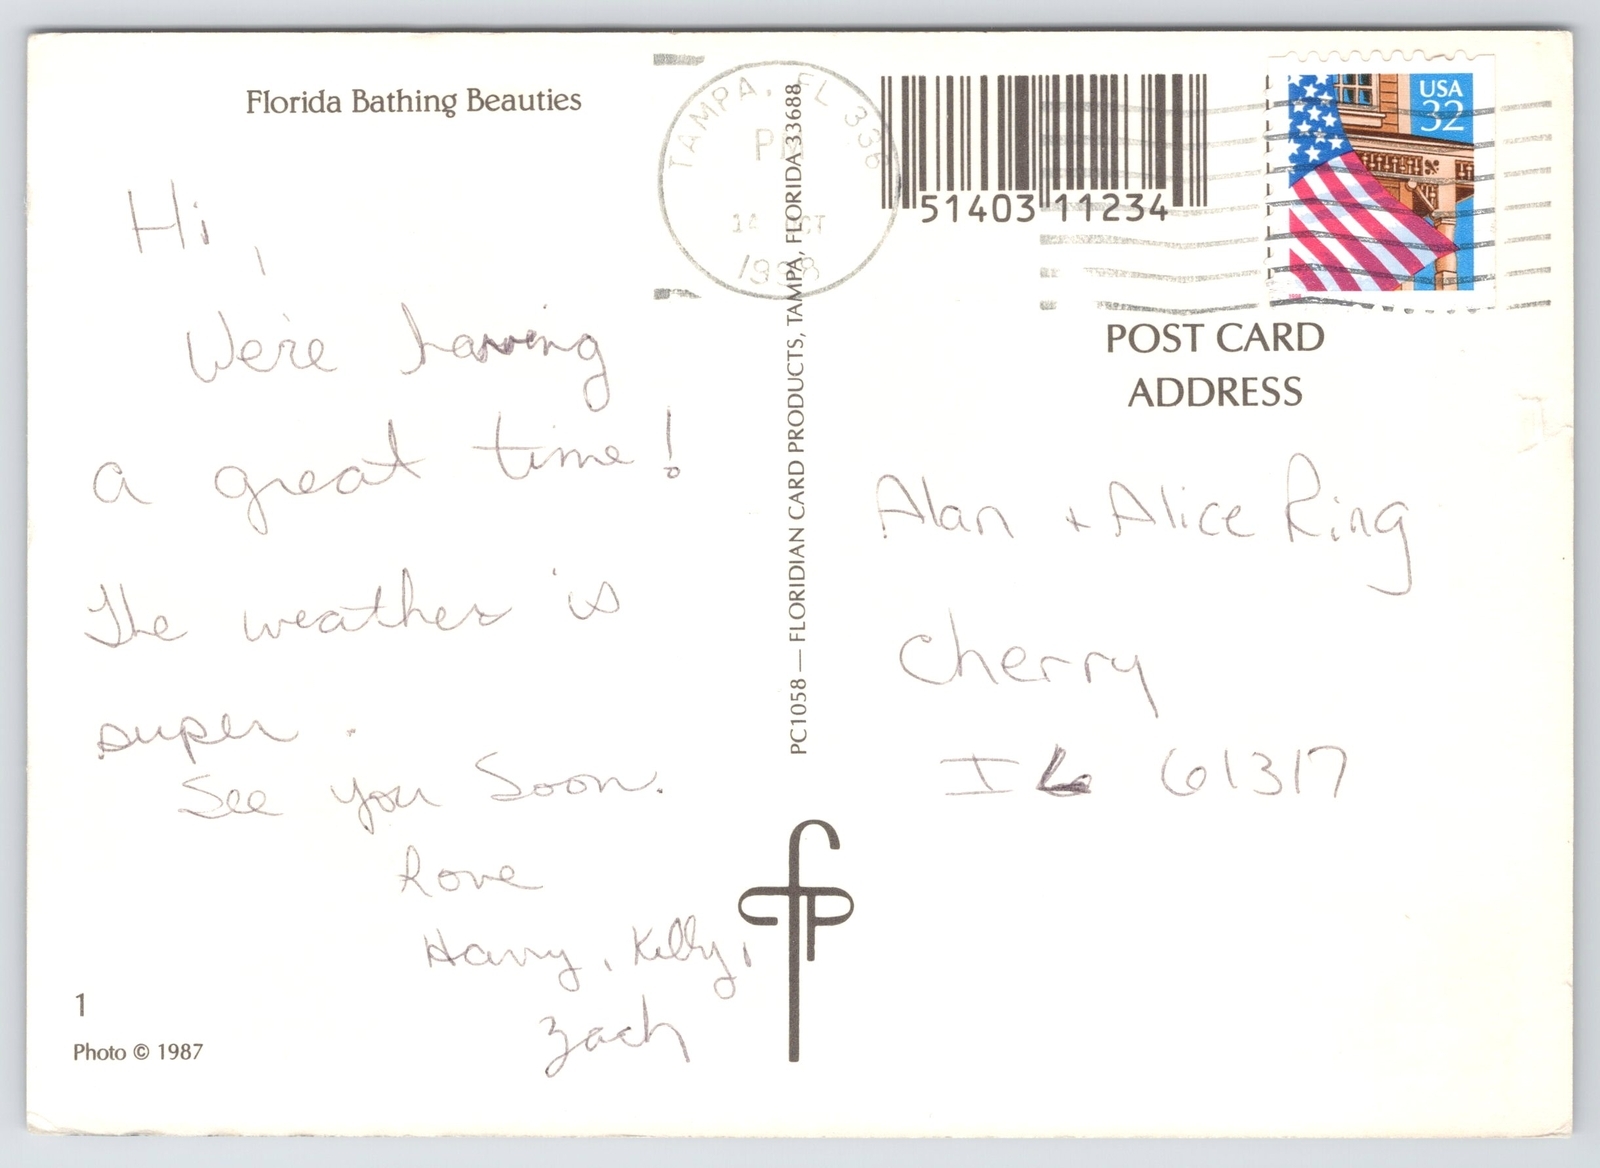 Florida Bathing Beauties
Hi,
We're having
a great time!
The weather is
super.
See you Soon.
Love
Harry, Kelly,
Zach
1
Photo © 1987
PC1058 — FLORIDIAN CARD PRODUCTS, TAMPA, FLORIDA 33688
TAMPA, FL 336
PM
14 OCT
51403 11234
USA
32
POST CARD
ADDRESS
Alan + Alice Ring
Cherry
IL 61317